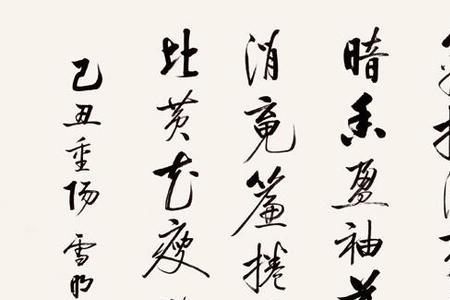 暗香盈袖
消魂簾捲
比黄花瘦
己丑重陽雪